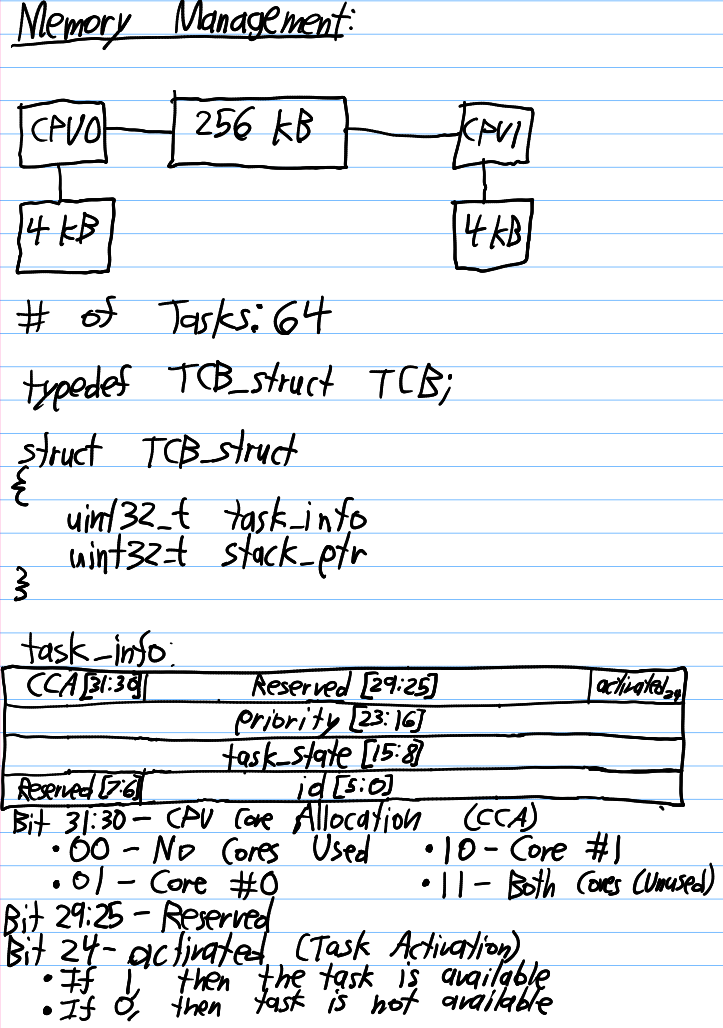 Memory Management:
CPU0 256 kB CPU1
4 kB 4 kB
# of Tasks: 64
typedef TCB_struct TCB;
struct TCB_struct
{
uint32_t task_info
uint32_t stack_ptr
}
task_info:
CCA [31:30] Reserved [29:25] activated 24
priority [23:16]
task_state [15:8]
Reserved [7:6] id [5:0]
Bit 31:30 - CPU Core Allocation (CCA)
• 00 - No Cores Used • 10 - Core #1
• 01 - Core #0 • 11 - Both Cores (Unused)
Bit 29:25 - Reserved
Bit 24 - activated (Task Activation)
• If 1, then the task is available
• If 0, then task is not available